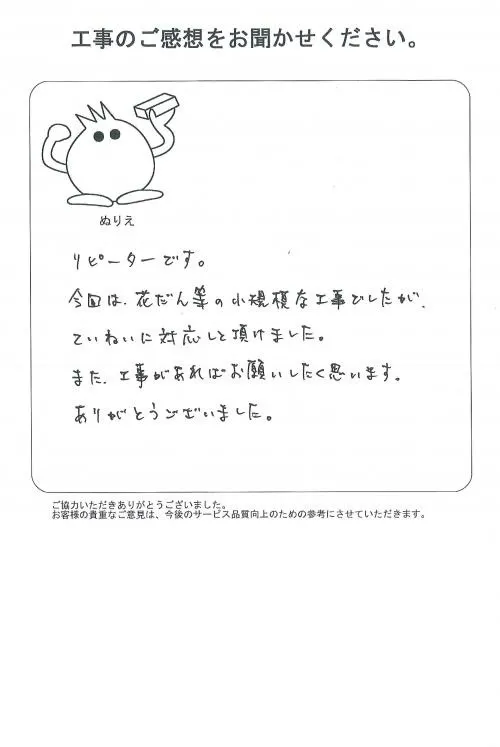 工事のご感想をお聞かせください。
ぬりえ
リピーターです。
今回は、花だん等の小規模な工事でしたが、
ていねいに対応して頂けました。
また、工事があればお願いしたく思います。
ありがとうございました。
ご協力いただきありがとうございました。
お客様の貴重なご意見は、今後のサービス品質向上のための参考にさせていただきます。